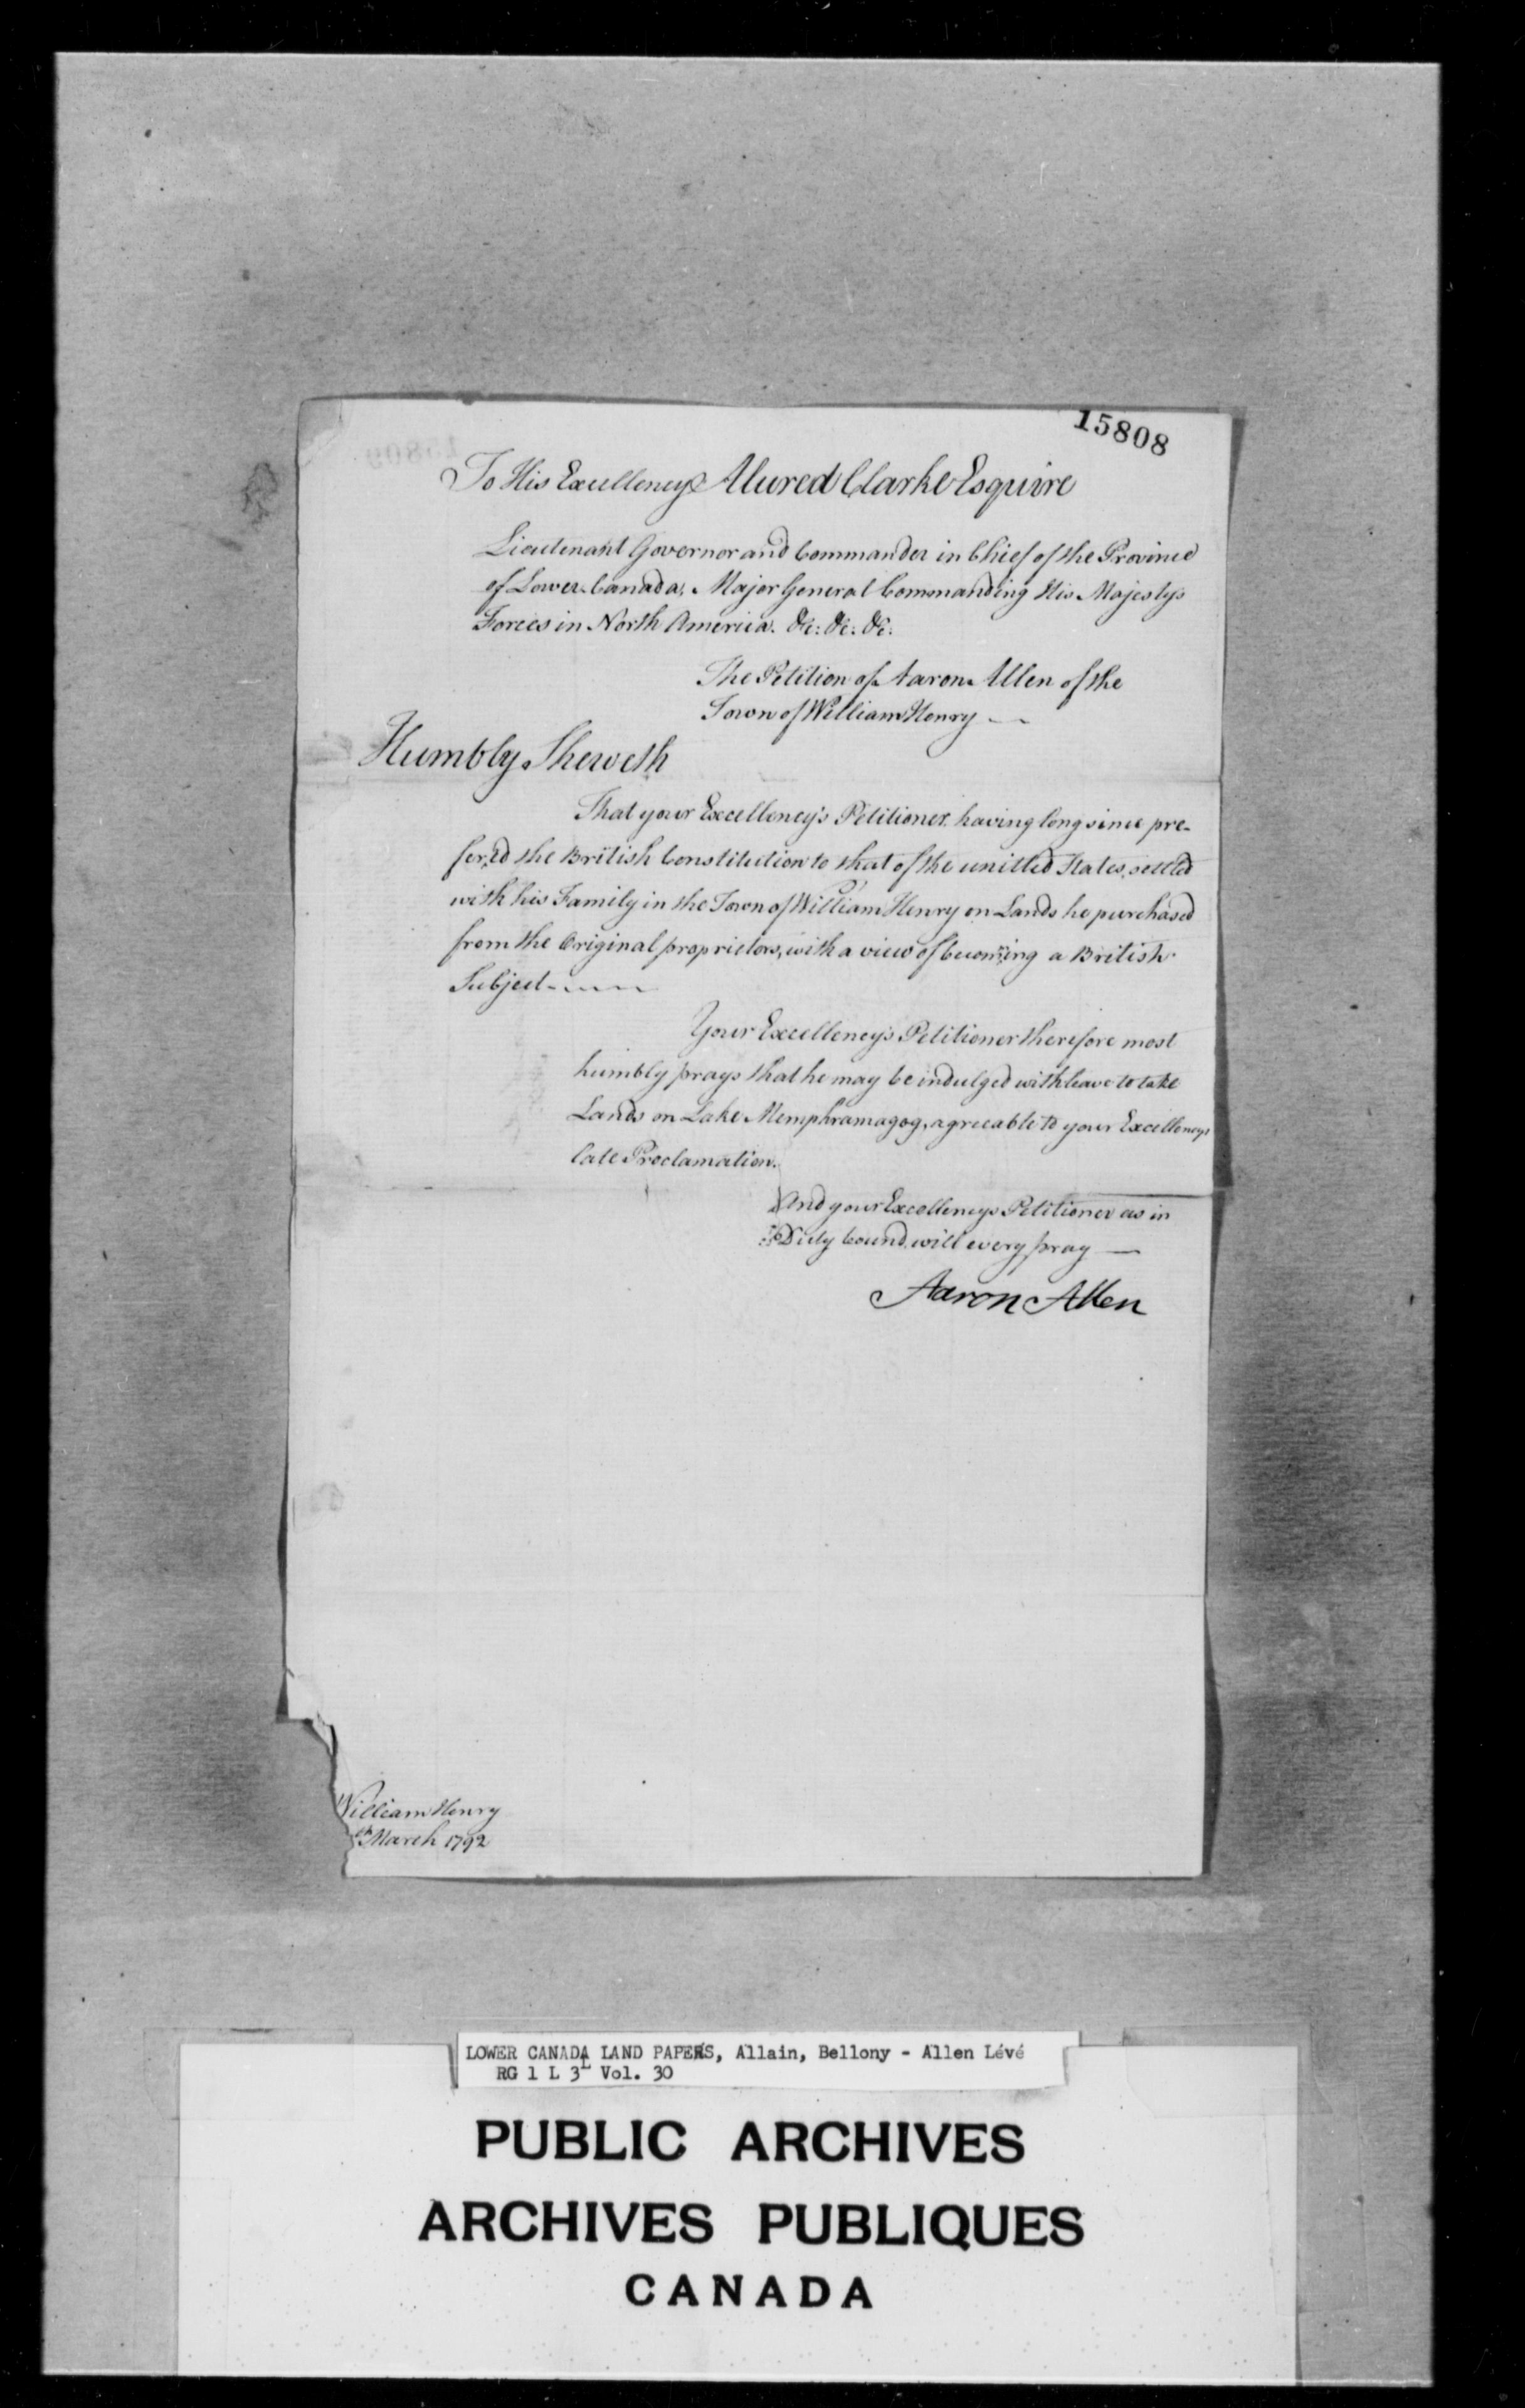 15808
To His Excellency Alured Clarke Esquire
Lieutenant Governor and Commander in Chief of the Province
of Lower Canada, Major General Commanding His Majestys
Forces in North America. &c: &c: &c:
The Petition of Aaron Allen of the
Town of William Henry
Humbly Sheweth
That your Excellency's Petitioner having long since pre-
fer'd the British Constitution to that of the unitted States, settled
with his Family in the Town of William Henry on Lands he purchased
from the Original proprietors, with a view of becoming a British
Subject
Your Excellency's Petitioner therefore most
humbly prays that he may be indulged with leave to take
Lands on Lake Memphramagog, agreeable to your Excellencys
late Proclamation.
And your Excellencys Petitioner as in
Duty bound will every pray
Aaron Allen
William Henry
March 1792
LOWER CANADA LAND PAPERS, Allain, Bellony - Allen Lévé
RG 1 L 3L Vol. 30
PUBLIC ARCHIVES
ARCHIVES PUBLIQUES
CANADA